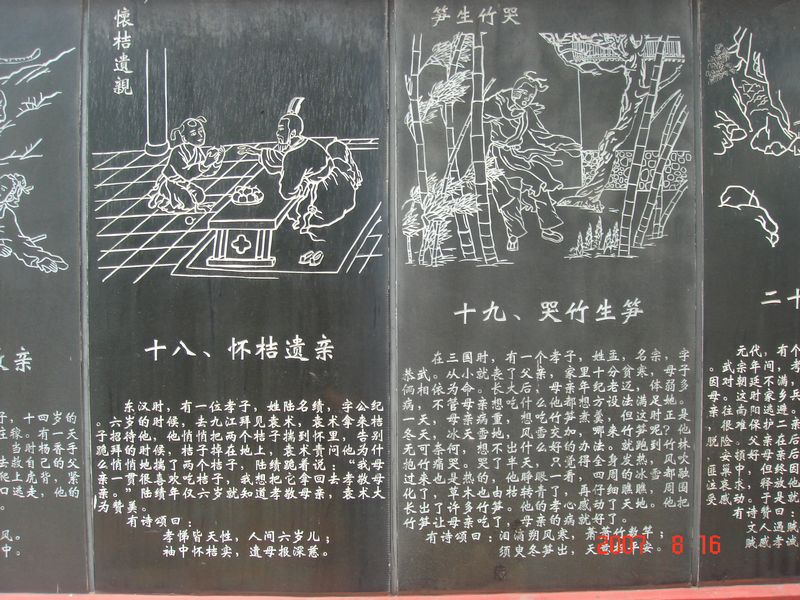 懷桔遺親
十八、怀桔遗亲
东汉时，有一位孝子，姓陆名绩，字公纪
。六岁的时候，去九江拜见袁术，袁术拿来桔
子招待他，他悄悄把两个桔子揣到怀里，告别
跪拜的时候，桔子掉在地上，袁术责问他“为什
么悄悄地揣了两个桔子，陆绩跪着说：“我母
亲一贯很喜欢吃桔子，我想把它拿回去孝敬母
亲。”陆绩年仅六岁就知道孝敬母亲，袁术大
为赞美。
有诗颂曰：
孝悌皆天性，人间六岁儿；
袖中怀桔实，遗母报深慈。
笋生竹哭
十九、哭竹生笋
在三国时，有一个孝子，姓孟，名宗，字
恭武。从小就丧了父亲，家里十分贫寒，母子
俩相依为命。长大后，母亲年纪老迈，体弱多
病，不管母亲想吃什么他都想方设法满足她。
一天，母亲病重，想吃竹笋煮羹，但这时正是
冬天，冰天雪地，风雪交加，哪来竹笋呢？他
无可奈何，想不出什么办法。就跑到竹林
抱竹痛哭。哭了半天，只觉得全身发热，风吹
过来也是热的，他睁眼一看，四周的冰雪都融
化了，草木也由枯转青了，再仔细瞧瞧，周围
长出了许多竹笋。他的孝心感动了天地。他把
竹笋让母亲吃了，母亲的病就好了。
有诗颂曰：泪滴朔风寒，萧萧竹数竿；
须臾冬笋出，天意报平安。
二十
元代，有个
。武宗年间，孝
因对朝廷不满，
母。这时家乡兵
亲往南阳逃避。
，很难保护二亲
脱险。父亲在后
安顿好母亲后
匪巢中，但终因
泣哀求，释放他
受感动。于是就
有诗赞曰：
文人遇贼
贼感孝诚
2007 8 16